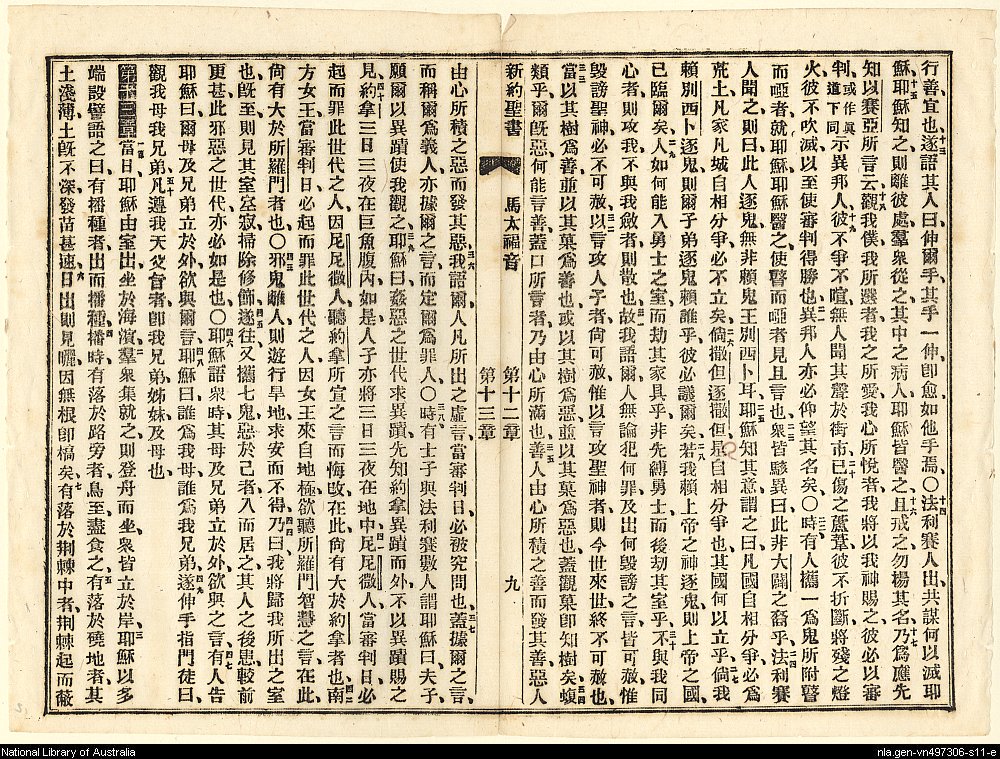 行善宜也遂語其人曰伸爾手其手一伸卽愈如他手焉〇法利賽人出共謀何以滅耶
穌耶穌知之則離彼處羣衆從之其中之病人耶穌皆醫之且戒之勿揚其名乃爲應先
知以賽亞所言云觀我僕我所選者我之所愛我心所悅者我將以我神賜之彼必以審
判或作眞道下同示異邦人彼不爭不喧無人聞其聲於街市已傷之蘆葦彼不折斷將殘之燈
火彼不吹滅以至使審判得勝也異邦人亦必仰望其名矣〇時有人攜一爲鬼所附瞽
而啞者就耶穌耶穌醫之使瞽而啞者見且言也衆皆駭異曰此非大闢之裔乎法利賽
人聞之則曰此人逐鬼無非賴鬼王別西卜耳耶穌知其意謂之曰凡國自相分爭必爲
荒土凡家凡城自相分爭必不立矣倘撒但逐撒但是自相分爭也其國何以立乎倘我
賴別西卜逐鬼則爾子弟逐鬼賴誰乎彼必議爾矣若我賴上帝之神逐鬼則上帝之國
已臨爾矣人如何能入勇士之室而劫其家具乎非先縛勇士而後劫其室乎不與我同
心者則攻我不與我斂者則散也故我語爾人無論犯何罪及出何毀謗之言皆可赦惟
毀謗聖神必不可赦以言攻人子者尙可赦惟以言攻聖神者則今世來世終不可赦也
當以其樹爲善並以其菓爲善也或以其樹爲惡並以其菓爲惡也蓋觀菓卽知樹矣蝮
類乎爾旣惡何能言善蓋口所言者乃由心所滿也善人由心所積之善而發其善惡人
新約聖書 馬太福音 第十二章 第十三章 九
由心所積之惡而發其惡我語爾人凡所出之虛言當審判日必被究問也蓋據爾之言
而稱爾爲義人亦據爾之言而定爾爲罪人〇時有士子與法利賽數人謂耶穌曰夫子
願爾以異蹟使我觀之耶穌曰姦惡之世代求異蹟先知約拿異蹟而外不以異蹟賜之
見約拿三日三夜在巨魚腹內如是人子亦將三日三夜在地中尼尼微人當審判日必
起而罪此世代之人因尼尼微人聽約拿所宣之言而悔改在此尙有大於約拿者也南
方女王當審判日必起而罪此世代之人因女王來自地極欲聽所羅門智慧之言而在此
尙有大於所羅門者也〇邪鬼離人則遊行旱地求安而不得乃曰我將歸我所出之室
也旣至則見其室空寂掃除修飾遂往又攜七鬼惡於己者入而居之其人之後患較前
更甚此邪惡之世代亦必如是也〇耶穌語衆時其母及兄弟立於外欲與之言有人告
耶穌曰爾母及兄弟立於外欲與爾言耶穌曰誰爲我母誰爲我兄弟遂伸手指門徒曰
觀我母我兄弟凡遵我天父旨者卽我兄弟姊妹及母也
第十三章當日耶穌由室出坐於海濱羣衆集就之則登舟而坐衆皆立於岸耶穌以多
端設譬語之曰有播種者出而播種播時有落於路旁者鳥至盡食之有落於磽地者其
土淺薄土旣不深發苗甚速日出則見曬因無根卽槁矣有落於荆棘中者荆棘起而蔽
National Library of Australia
nla.gen-vn497306-s11-e